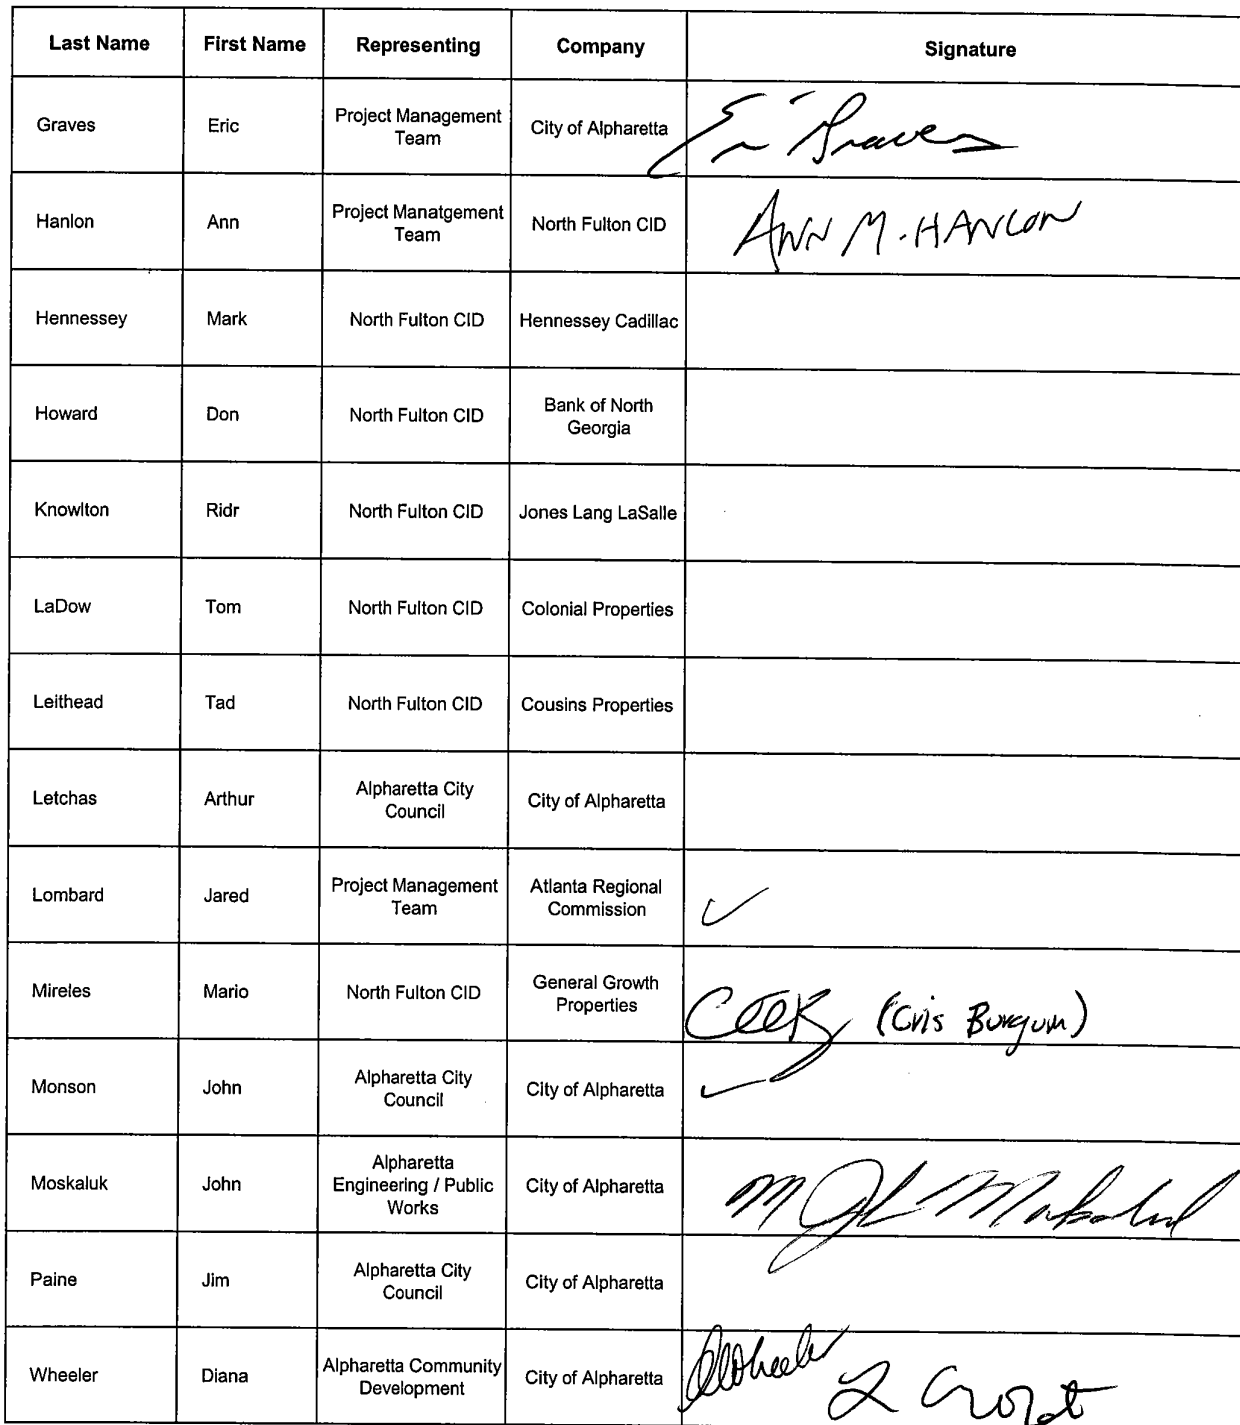 Last Name First Name Representing Company Signature
Graves Eric Project Management Team City of Alpharetta Eric Graves
Hanlon Ann Project Manatgement Team North Fulton CID ANN M. HANLON
Hennessey Mark North Fulton CID Hennessey Cadillac
Howard Don North Fulton CID Bank of North Georgia
Knowlton Ridr North Fulton CID Jones Lang LaSalle
LaDow Tom North Fulton CID Colonial Properties
Leithead Tad North Fulton CID Cousins Properties
Letchas Arthur Alpharetta City Council City of Alpharetta
Lombard Jared Project Management Team Atlanta Regional Commission ✓
Mireles Mario North Fulton CID General Growth Properties (Cris Burgum)
Monson John Alpharetta City Council City of Alpharetta ✓
Moskaluk John Alpharetta Engineering / Public Works City of Alpharetta M John Moskaluk
Paine Jim Alpharetta City Council City of Alpharetta
Wheeler Diana Alpharetta Community Development City of Alpharetta DWheeler